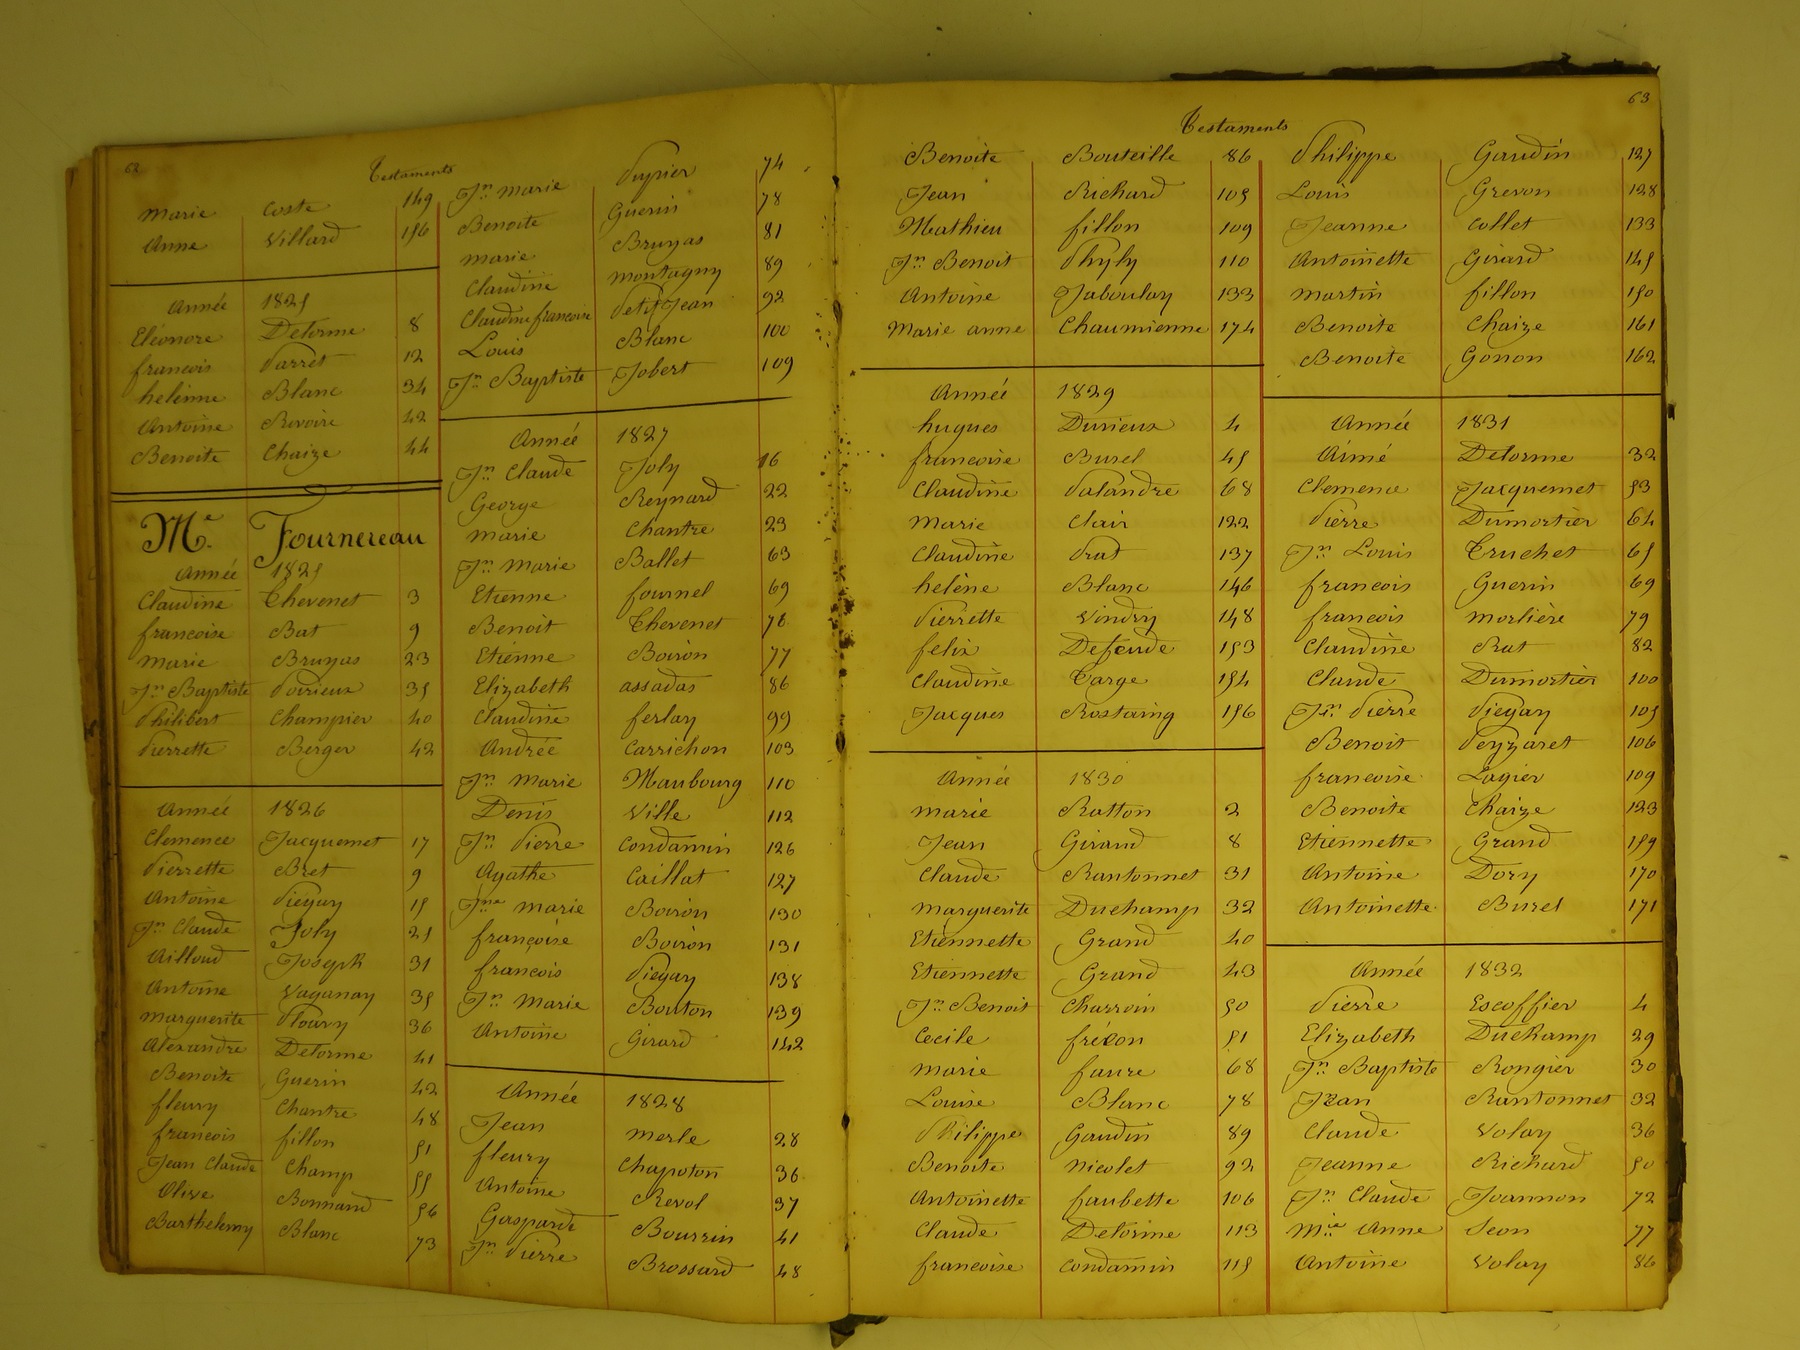 62
Testaments
Marie Coste 149
Anne Villard 156
Année 1825
Eléonore Delorme 8
francois Parret 12
helénne Blanc 34
Antoine Rivoire 42
Benoite Chaize 44
Me. Fournereau
Année 1825
Claudine Thevenet 3
francoise Bat 9
Marie Bruyas 23
Jn Baptiste Poirieux 35
Philibert Champier 40
Pierrette Berger 42
Année 1826
Clemence Jacquemet 17
Pierrette Bret 9
Antoine Piégay 15
Jn Claude Joly 25
Ailloud Joseph 31
Antoine Vaganay 35
Marguerite Ploury 36
Alexandre Delorme 41
Benoite Guerin 42
fleury Chantre 48
francois fillon 51
Jean Claude Champ 55
Olive Bonnand 56
Barthelemy Blanc 73
Jn Marie Pupier 74
Benoite Guerin 78
Marie Bruyas 81
Claudine Montagny 89
Claudine francoise Petit Jean 92
Louis Blanc 100
Jn Baptiste Jobert 109
Année 1827
Jn Claude Joly 16
George Reynard 22
Marie Chantre 23
Jn Marie Ballet 63
Etienne fournel 69
Benoit Thevenet 76
Etienne Boiron 77
Elizabeth assadas 86
Claudine ferlay 99
Andrée Carrichon 103
Jn Marie Maubourg 110
Denis Ville 112
Jn Pierre Condamin 126
Agathe Caillat 127
Jne Marie Boiron 130
françoise Boiron 131
francois Piegay 138
Jn Marie Bouton 139
Antoine Girard 142
Année 1828
Jean Merle 28
fleury Chapoton 36
Antoine Revol 37
Gasparde Bourrin 41
Jn Pierre Brossard 48
63
Testaments
Benoite Bouteille 86
Jean Richard 105
Mathieu fillon 109
Jn Benoit Phyly 110
Antoine Jaboulay 133
Marie anne Chaumienne 174
Année 1829
hugues Durieux 4
francoise Burel 45
Claudine Palandre 68
Marie Clair 122
Claudine Prat 137
heléne Blanc 146
Pierrette Vindry 148
felix Defeude 153
Claudine Targe 154
Jacques Rostaing 156
Année 1830
Marie Ratton 2
Jean Giraud 8
Claude Rantonnet 31
Marguerite Duchamp 32
Etiennette Grand 40
Etiennette Grand 43
Jn Benoit Charroin 50
Cécile frécon 51
Marie faure 68
Louise Blanc 78
Philippe Gaudin 89
Benoite Nicolet 92
Antoinette faubette 106
Claude Delorme 113
francoise Condamin 115
Philippe Gaudin 127
Louis Grevon 128
Jeanne Collet 133
Antoinette Girard 145
Martin fillon 150
Benoite Chaize 161
Benoite Gonon 162
Année 1831
Aimé Delorme 32
Clemence Jacquemet 53
Pierre Dumortier 64
Jn Louis Truchet 65
francois Guerin 69
francois Morlière 79
Claudine Rat 82
Claude Dumortier 100
Jn Pierre Piegay 105
Benoit Peyzaret 106
francoise Lagier 109
Benoite Chaize 123
Etiennette Grand 159
Antoine Dory 170
Antoinette Burel 171
Année 1832
Pierre Escoffier 4
Elizabeth Duchamp 29
Jn Baptiste Rongier 30
Jean Rantonnet 32
Claude Volay 36
Jeanne Richard 50
Jn Claude Joannon 72
Mie Anne Seon 77
Antoine Volay 86